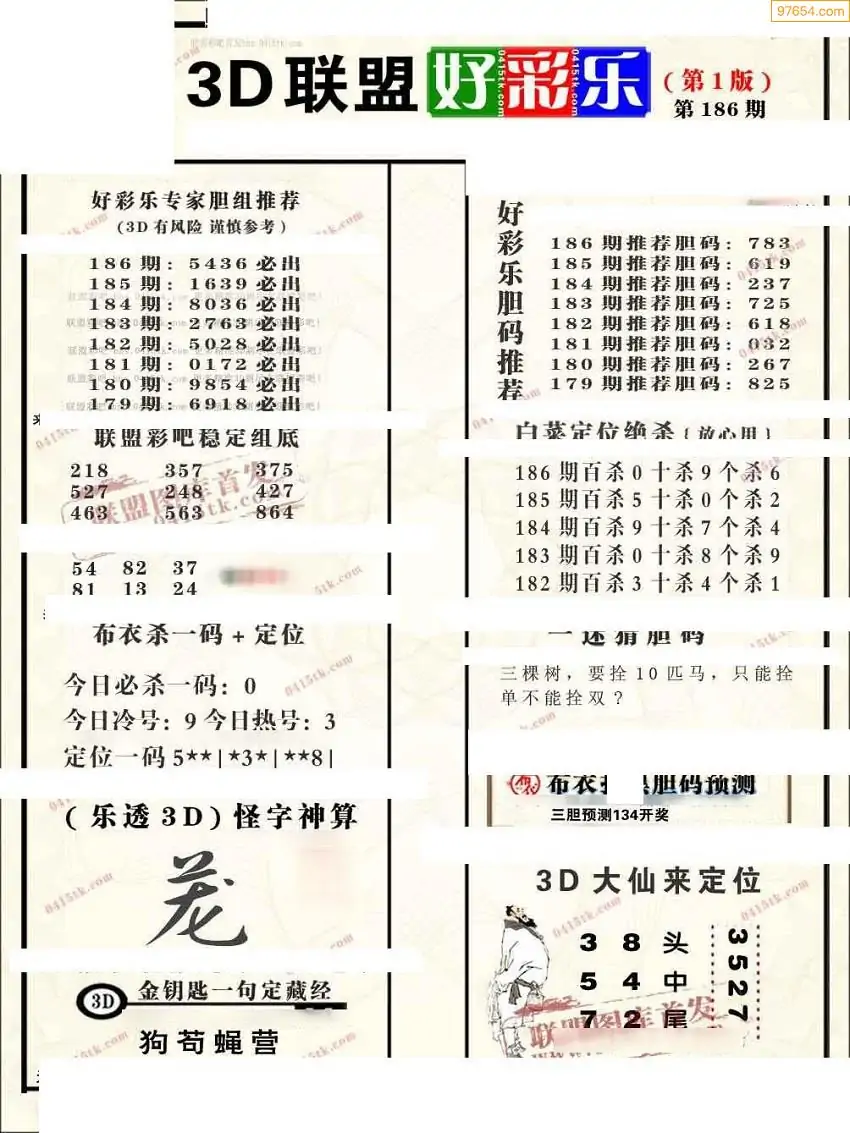 97654.com
3D联盟 好彩乐 (第1版)
第186期
好彩乐专家胆组推荐
(3D有风险 谨慎参考)
186期: 5436必出
185期: 1639必出
184期: 8036必出
183期: 2763必出
182期: 5028必出
181期: 0172必出
180期: 9854必出
179期: 6918必出
联盟彩吧稳定组底
218 357 375
527 248 427
463 563 864
54 82 37
81 13 24
布衣杀一码+定位
今日必杀一码: 0
今日冷号: 9 今日热号: 3
定位一码5**|*3*|**8|
(乐透3D)怪字神算
3D 金钥匙一句定藏经
狗苟蝇营
好彩乐胆码推荐
186期推荐胆码: 783
185期推荐胆码: 619
184期推荐胆码: 237
183期推荐胆码: 725
182期推荐胆码: 618
181期推荐胆码: 032
180期推荐胆码: 267
179期推荐胆码: 825
白菜定位绝杀{放心用}
186期百杀0十杀9个杀6
185期百杀5十杀0个杀2
184期百杀9十杀7个杀4
183期百杀0十杀8个杀9
182期百杀3十杀4个杀1
一迷猜胆码
三棵树，要拴10匹马，只能拴
单不能拴双？
胆码预测
三胆预测134开奖
3D大仙来定位
3 8 头
5 4 中
7 2 尾
3527
联盟图库首发
0415tk.com